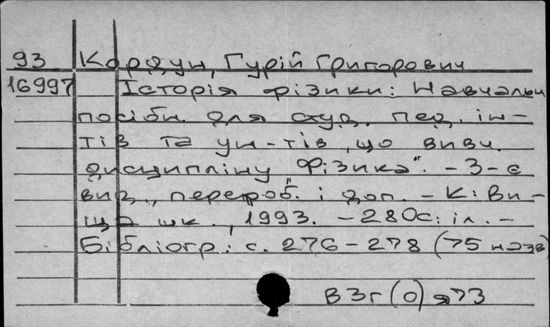 93 Кордун, Гурій Григорович
16997 Історія фізики: Навчальн
посібн. для студ. пед. ін-
тів та ун-тів, що вивч.
дисципліну "Фізика". - 3-є
вид., перероб. і доп. - К: Ви-
ща шк., 1993. - 280с: іл. -
Бібліогр.: с. 276-278 (75 назв)
В3г(0)я73